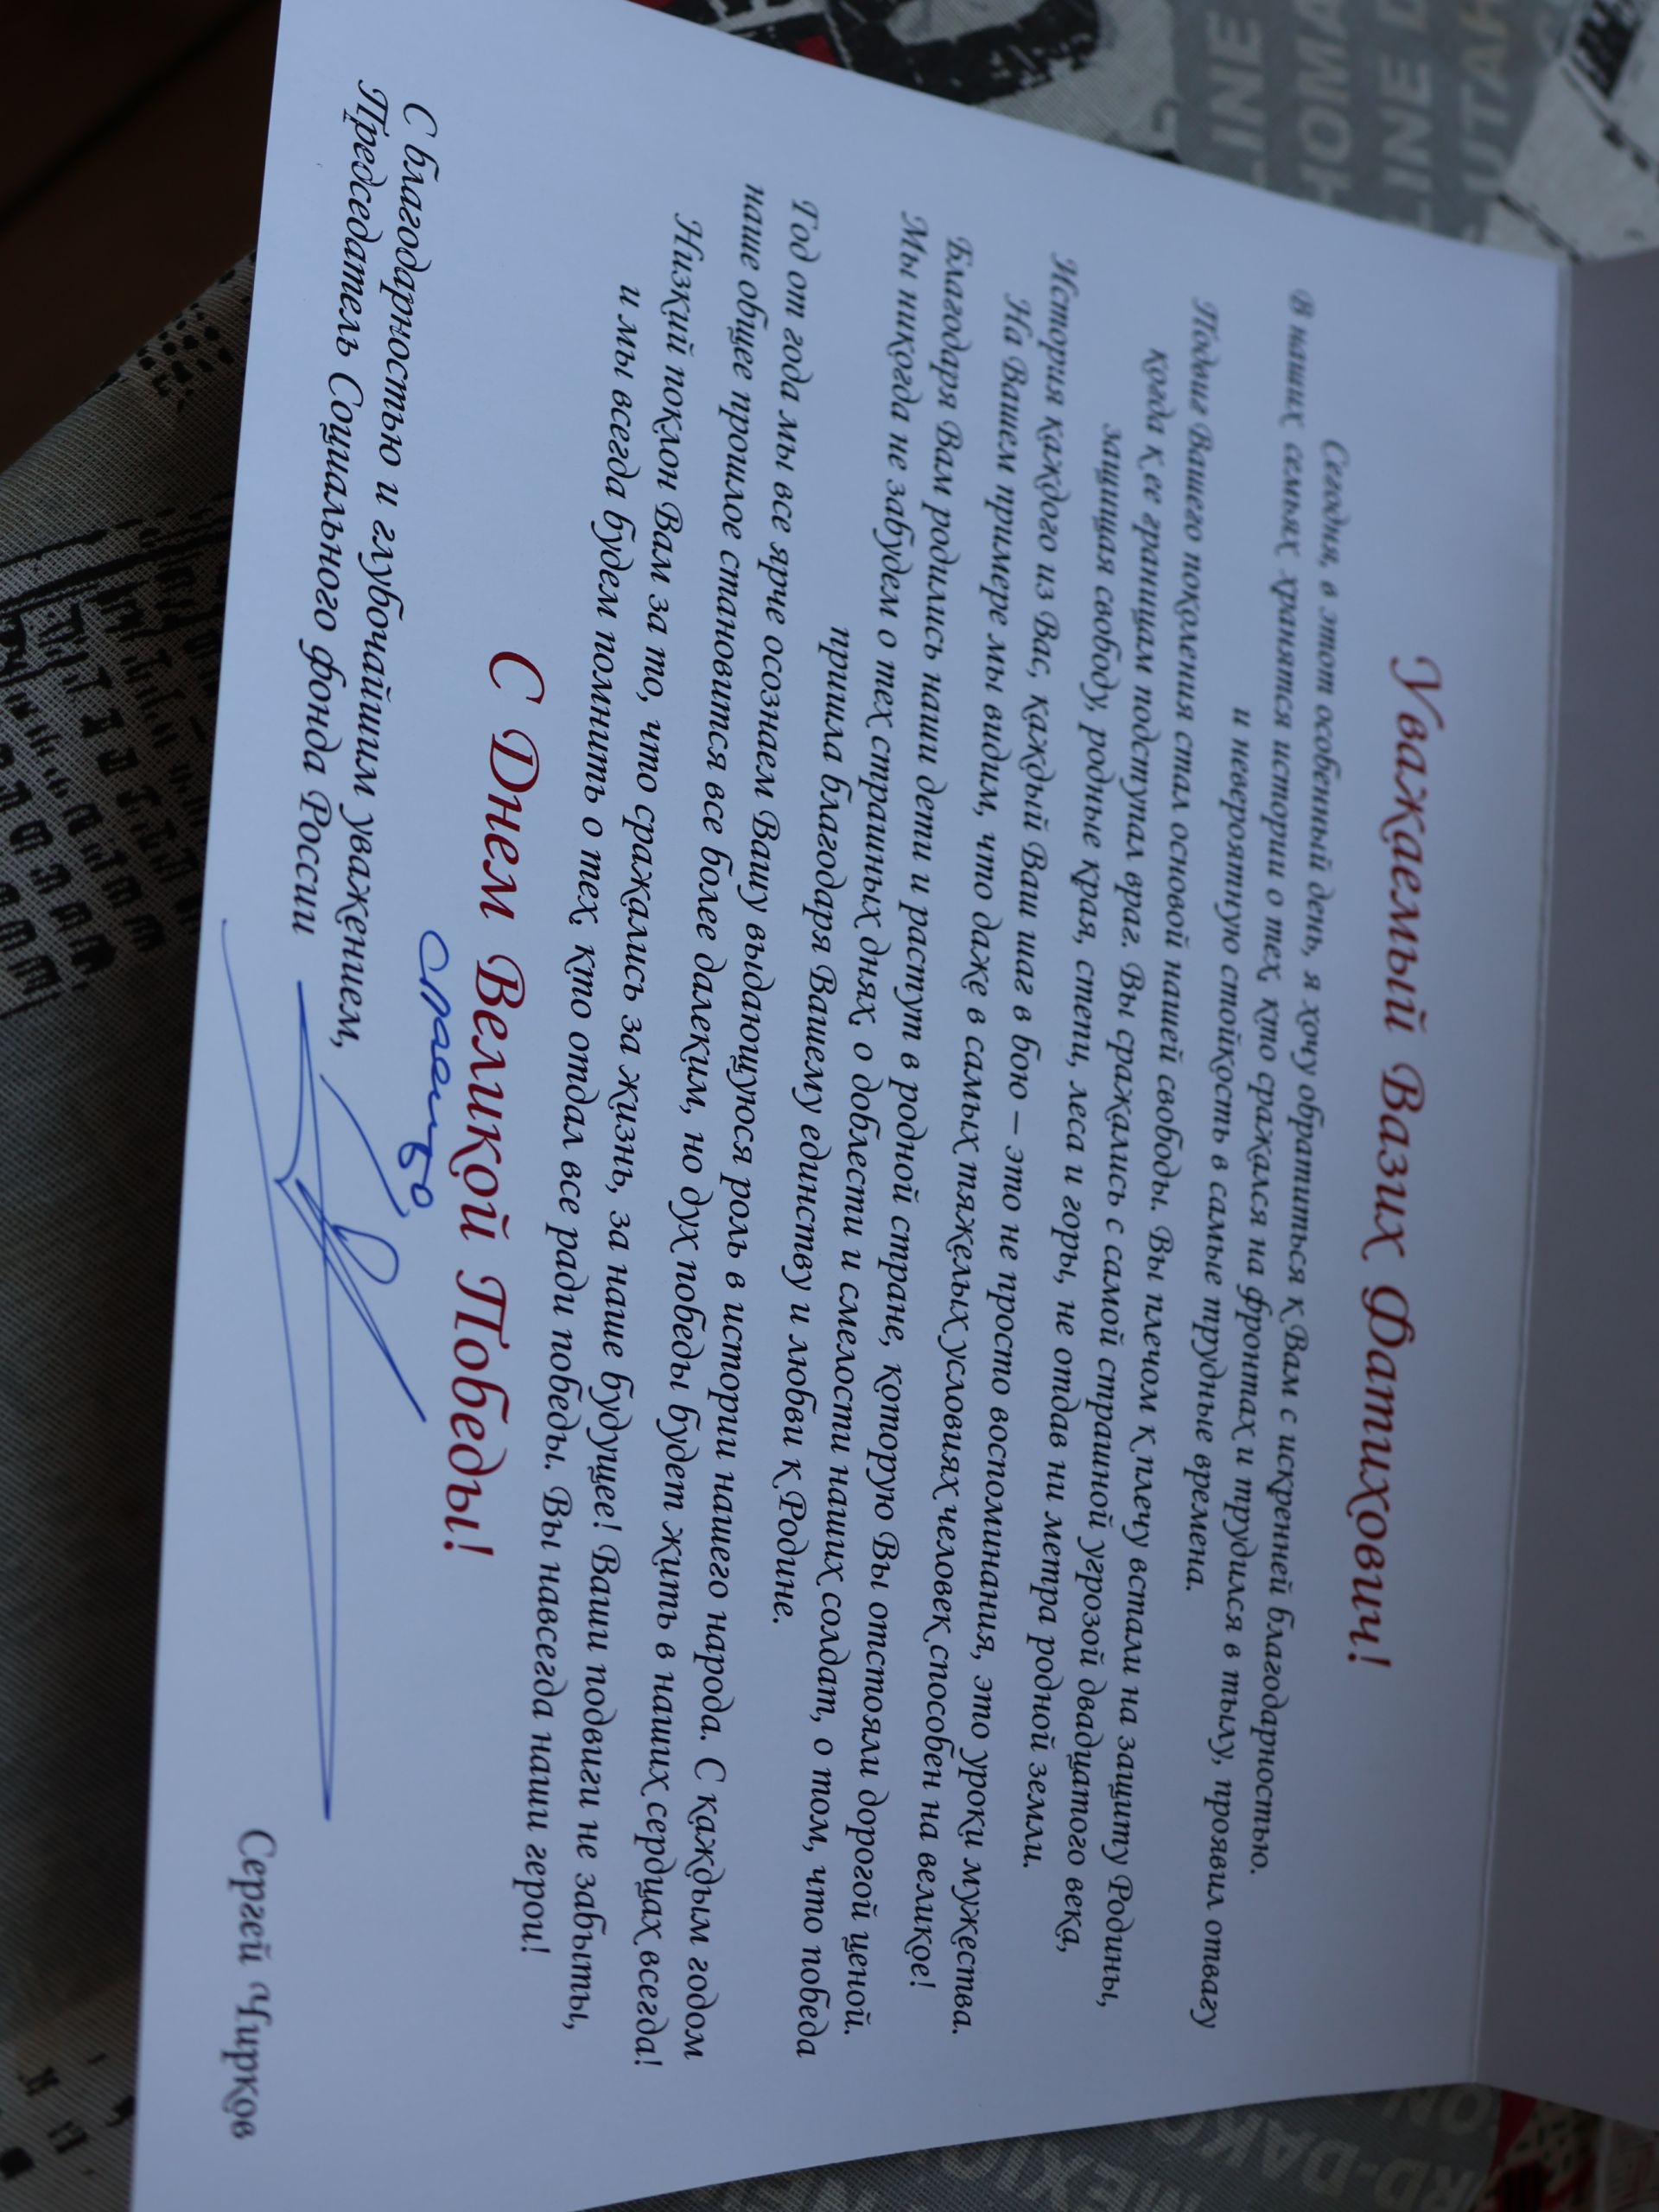 Уважаемый Вазих Фатихович!
Сегодня, в этот особенный день, я хочу обратиться к Вам с искренней благодарностью.
В наших семьях хранятся истории о тех, кто сражался на фронтах и трудился в тылу, проявил отвагу
и невероятную стойкость в самые трудные времена.
Подвиг Вашего поколения стал основой нашей свободы. Вы плечом к плечу встали на защиту Родины,
когда к ее границам подступал враг. Вы сражались с самой страшной угрозой двадцатого века,
защищая свободу, родные края, степи, леса и горы, не отдав ни метра родной земли.
История каждого из Вас, каждый Ваш шаг в бою – это не просто воспоминания, это уроки мужества.
На Вашем примере мы видим, что даже в самых тяжелых условиях человек способен на великое!
Благодаря Вам родились наши дети и растут в родной стране, которую Вы отстояли дорогой ценой.
Мы никогда не забудем о тех страшных днях, о доблести и смелости наших солдат, о том, что победа
пришла благодаря Вашему единству и любви к Родине.
Год от года мы все ярче осознаем Вашу выдающуюся роль в истории нашего народа. С каждым годом
наше общее прошлое становится все более далеким, но дух победы будет жить в наших сердцах всегда!
Низкий поклон Вам за то, что сражались за жизнь, за наше будущее! Ваши подвиги не забыты,
и мы всегда будем помнить о тех, кто отдал все ради победы. Вы навсегда наши герои!
С Днем Великой Победы!
спасибо
С благодарностью и глубочайшим уважением,
Председатель Социального фонда России
Сергей Чирков
LINE
HOMA
LINE D
UTAH
RD-DAKO
MEXIC